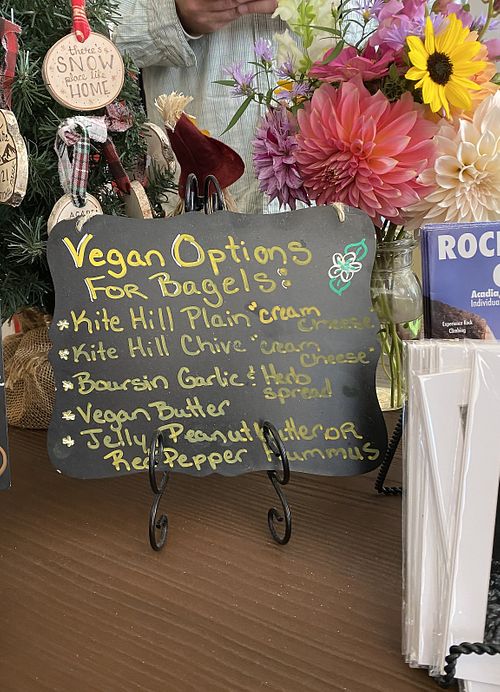 there's
SNOW
place like
HOME
Vegan Options
For Bagels:
Kite Hill Plain "cream
cheese"
Kite Hill Chive "cream
cheese"
Boursin Garlic & Herb
spread
Vegan Butter
Jelly, Peanut butter or
Red Pepper Hummus
ROC
Acadia,
Individua
Experience Rock
Climbing